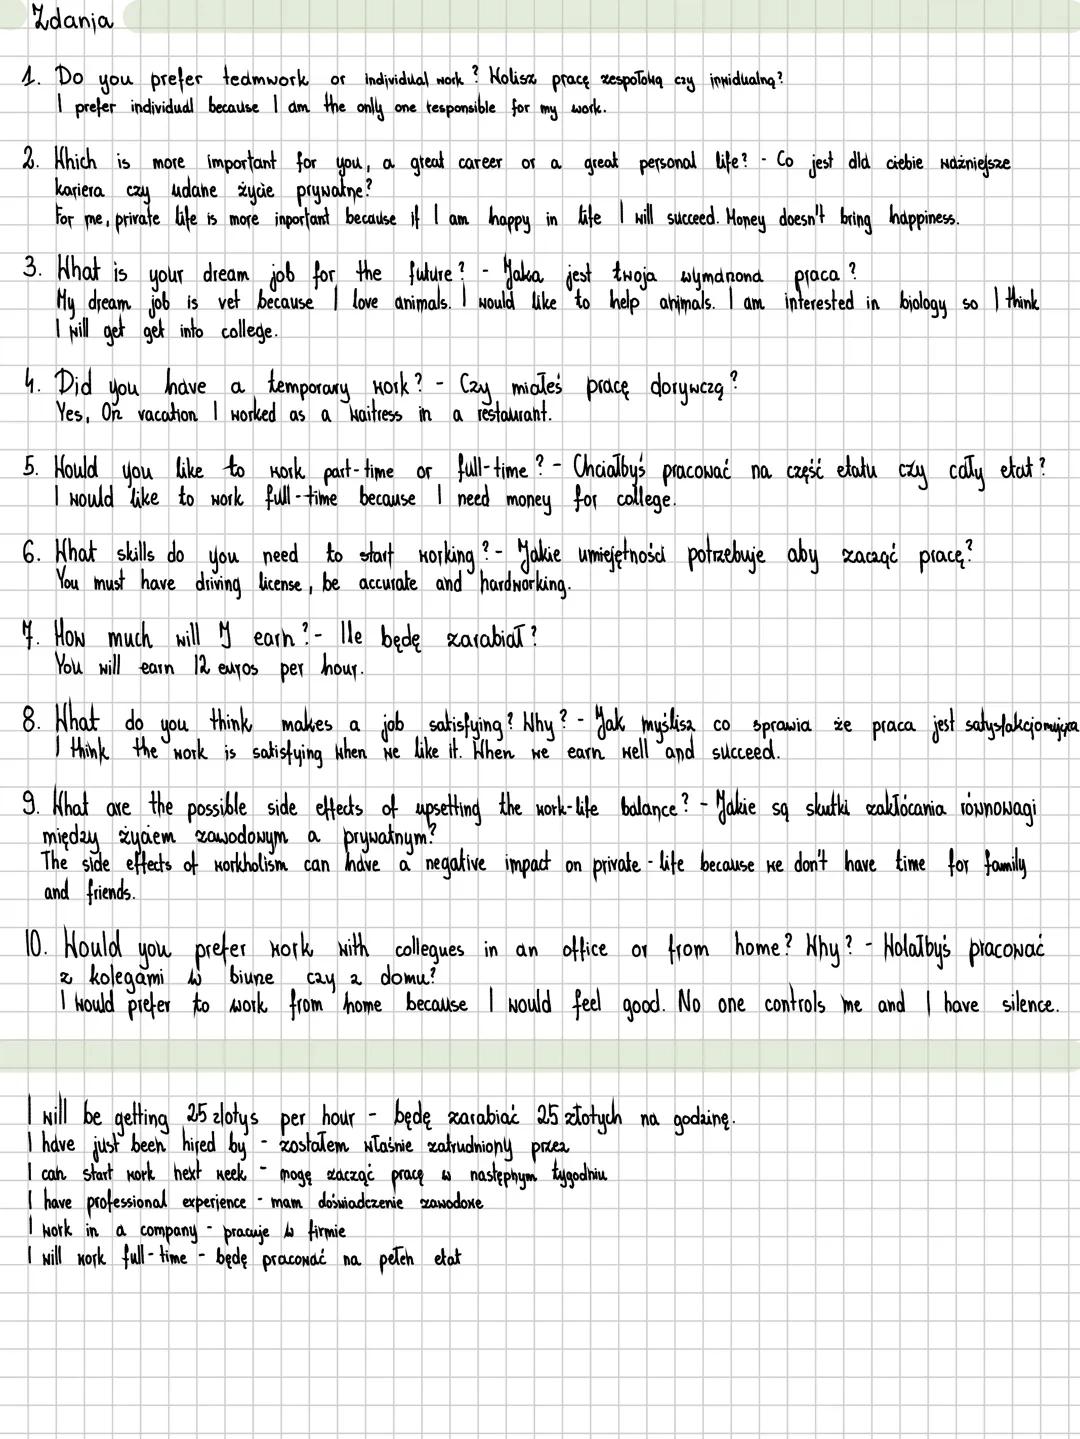 Zdania
1. Do you prefer teamwork or individual work? Wolisz pracę zespołową czy inwidualną?
I prefer individual because I am the only one responsible for my work.
2. Which is more important for you, a great career or a great personal life? - Co jest dla ciebie ważniejsze
kariera czy udane życie prywatne?
For me, private life is more inportant because if I am happy in life I will succeed. Money doesn't bring happiness.
3. What is your dream job for the future? - Jaka jest twoja wymarzona praca?
My dream job is vet because I love animals. I would like to help animals. I am interested in biology so I think
I will get get into college.
4. Did you have a temporary work? - Czy miałeś pracę dorywczą?
Yes, On vacation I worked as a waitress in a restaurant.
5. Would you like to work part-time or full-time? - Chciałbyś pracować na część etatu czy cały etat?
I would like to work full-time because I need money for college.
6. What skills do you need to start working? - Jakie umiejętności potrzebuje aby zacząć pracę?
You must have driving license, be accurate and hardworking.
7. How much will I earn? - Ile będę zarabiał?
You will earn 12 euros per hour.
8. What do you think makes a job satisfying? Why? - Jak myślisz co sprawia że praca jest satysfakcjonująca
I think the work is satisfying when we like it. When we earn well and succeed.
9. What are the possible side effects of upsetting the work-life balance? - Jakie są skutki zakłócania równowagi
między życiem zawodowym a prywatnym?
The side effects of workholism can have a negative impact on private-life because we don't have time for family
and friends.
10. Would you prefer work with collegues in an office or from home? Why? - Wolałbyś pracować
z kolegami w biurze czy z domu?
I would prefer to work from home because I would feel good. No one controls me and I have silence.
I will be getting 25 zlotys per hour - będę zarabiać 25 złotych na godzinę.
I have just been hired by - zostałem właśnie zatrudniony przez
I can start work next week - mogę zacząć pracę w następnym tygodniu
I have professional experience - mam doświadczenie zawodowe
I work in a company - pracuje w firmie
I will work full-time - będę pracować na pełen etat